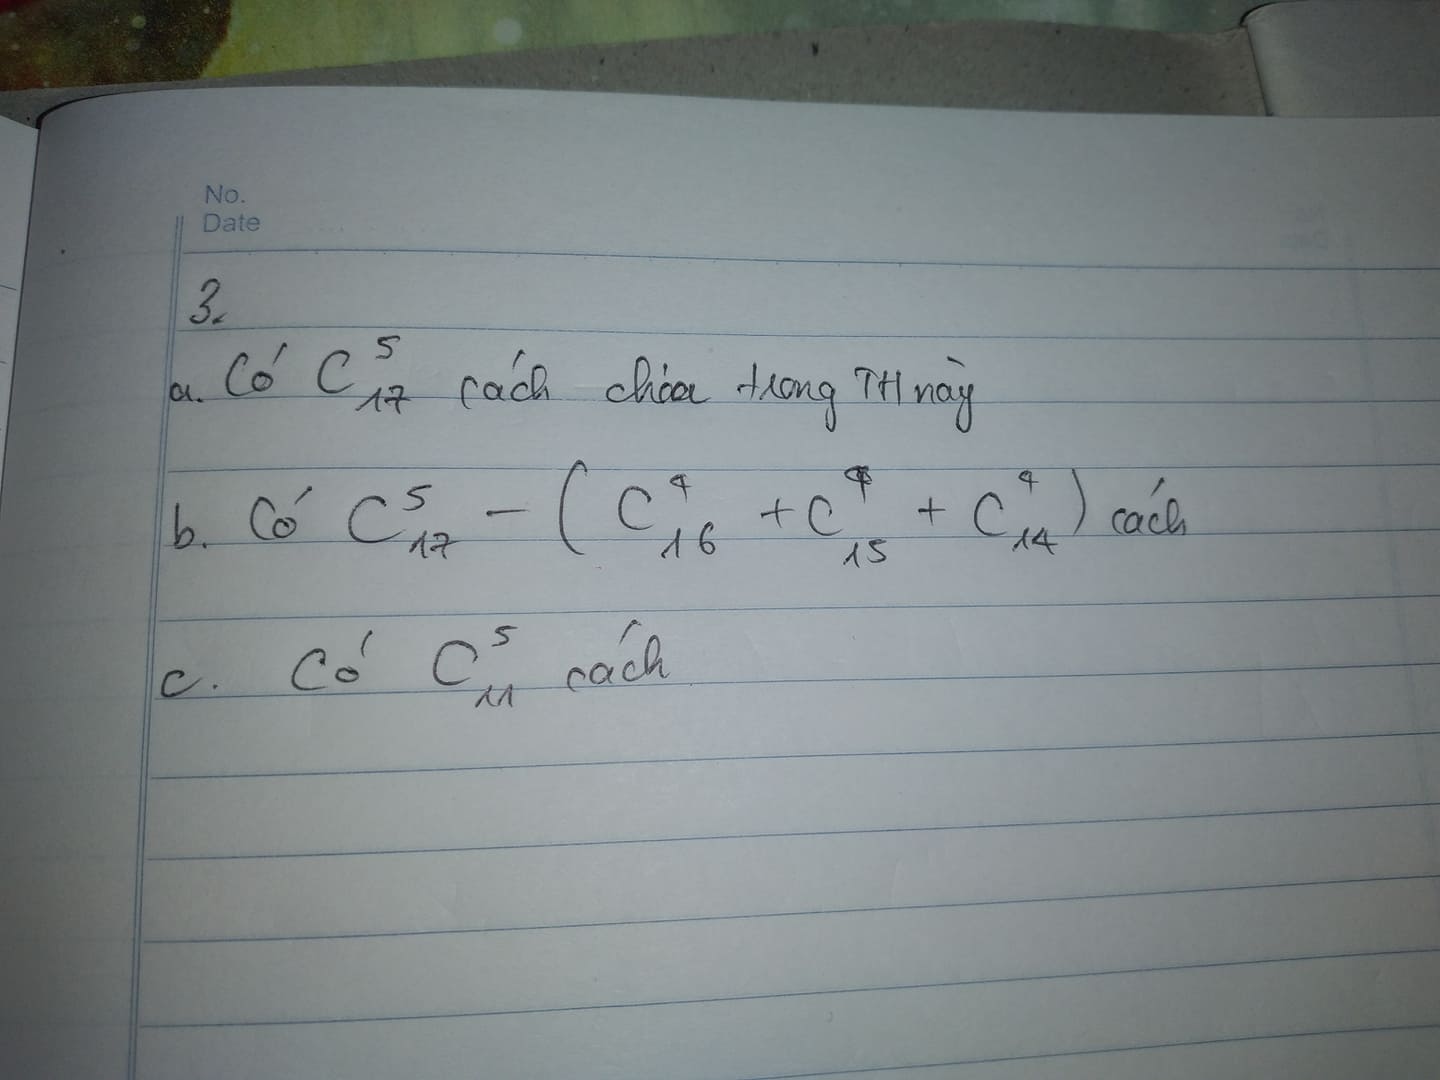 No.
Date
3.
a. Có C⁵₁₇ cách chia trong TH này
b. Có C⁵₁₇ - (C⁴₁₆ + C⁴₁₅ + C⁴₁₄) cách
c. Có C⁵₁₁ cách